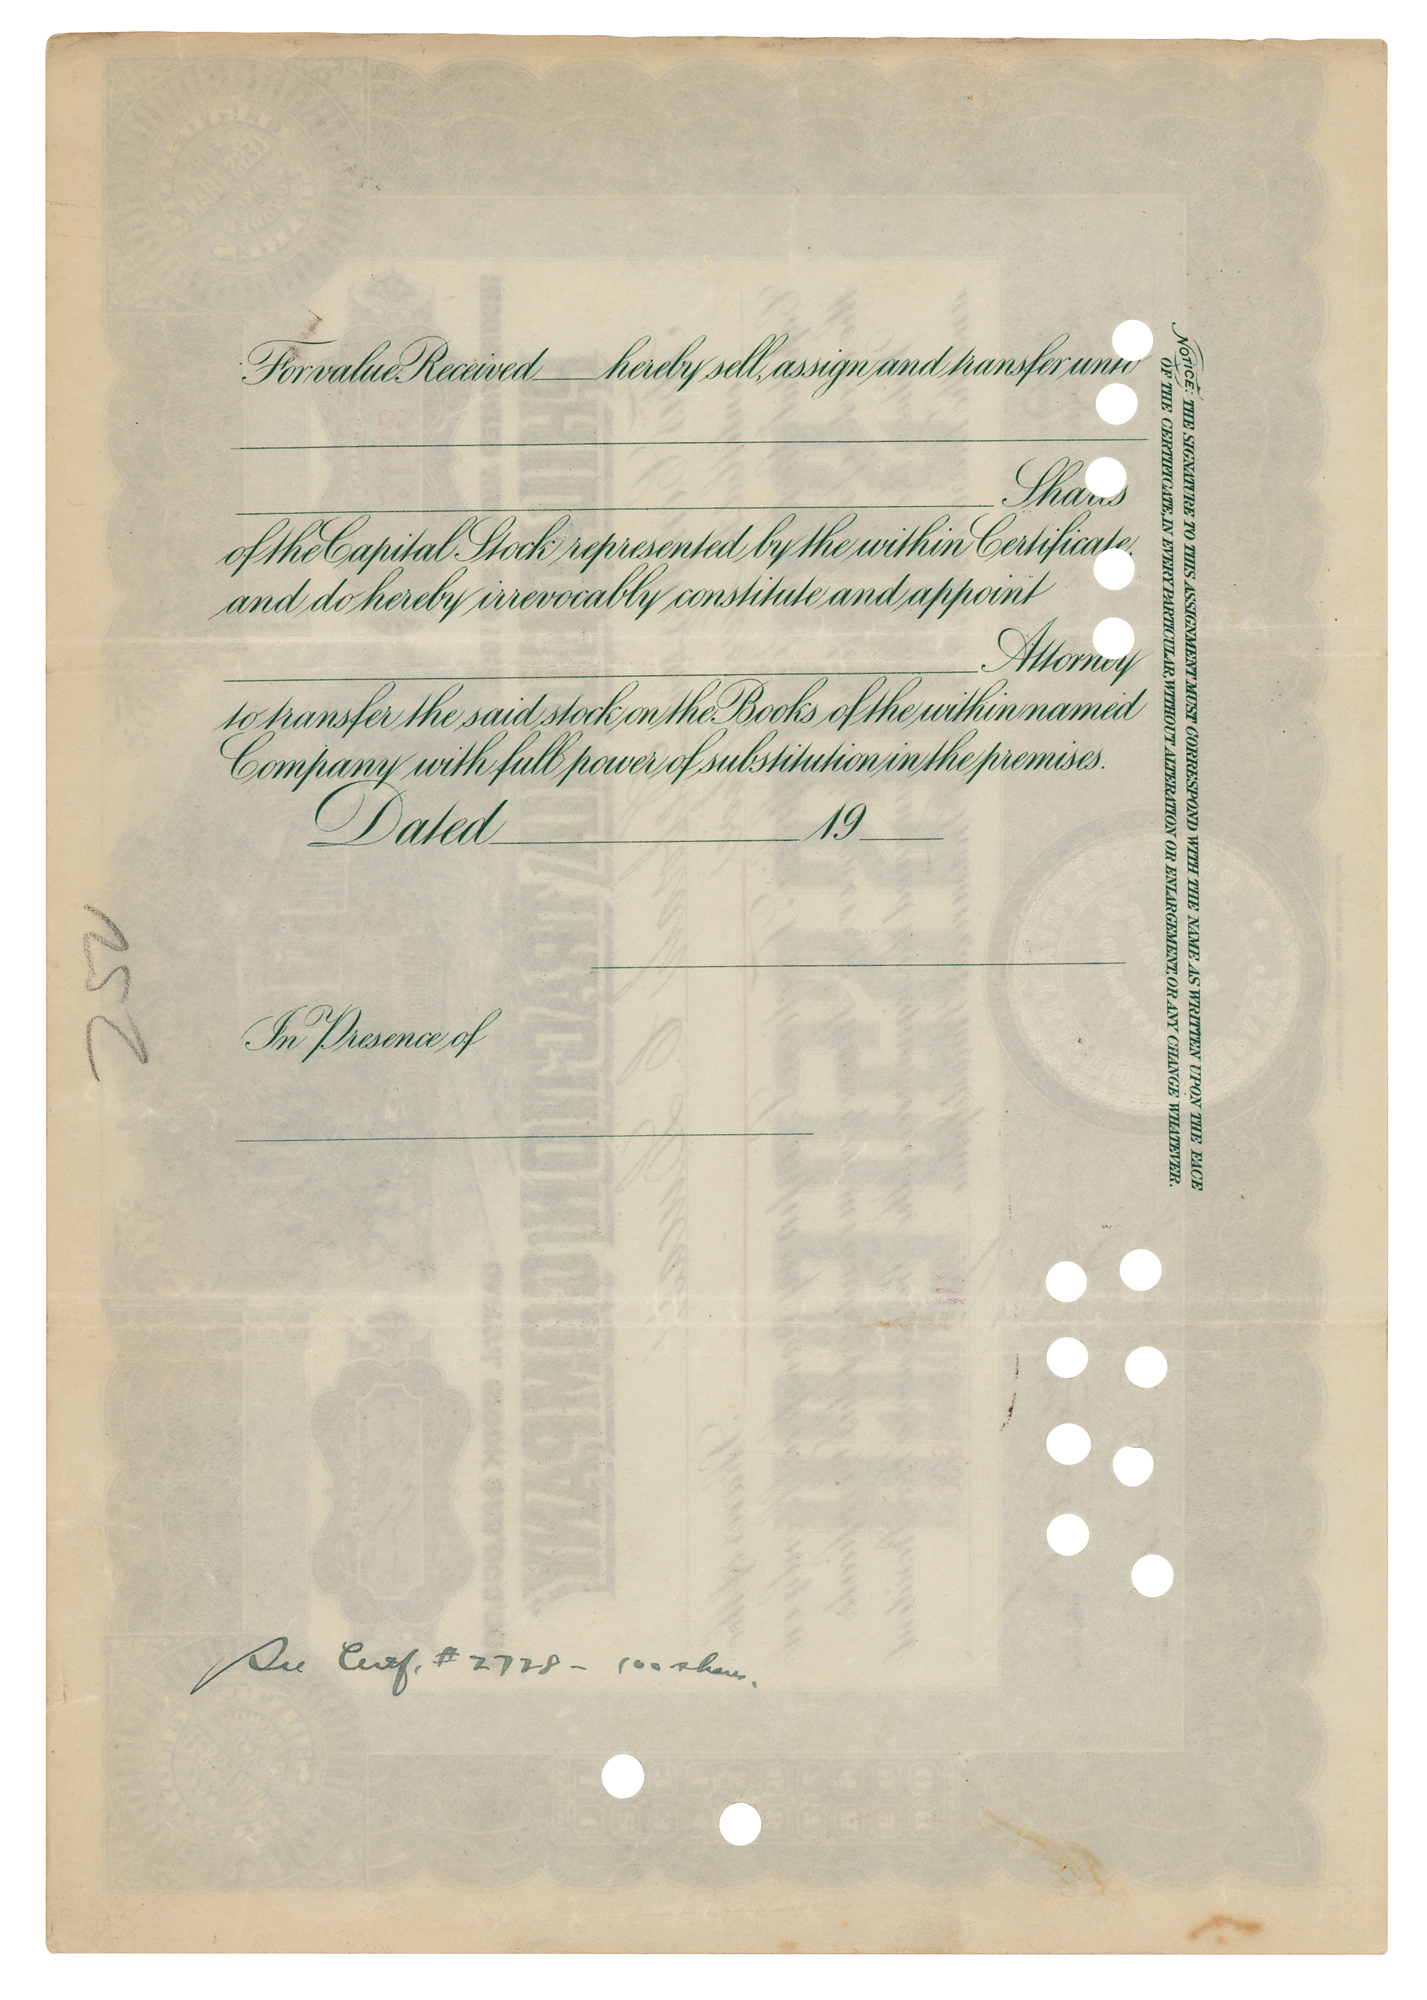 For value Received ____ hereby sell, assign and transfer unto
____ Shares
of the Capital Stock represented by the within Certificate,
and do hereby irrevocably constitute and appoint
____ Attorney
to transfer the said stock on the Books of the within named
Company with full power of substitution in the premises.
Dated ____ 19 ____
In Presence of
NOTICE: THE SIGNATURE TO THIS ASSIGNMENT MUST CORRESPOND WITH THE NAME AS WRITTEN UPON THE FACE
OF THE CERTIFICATE, IN EVERY PARTICULAR, WITHOUT ALTERATION OR ENLARGEMENT, OR ANY CHANGE WHATEVER.
250
See Certf. # 2728 - 100 shares.